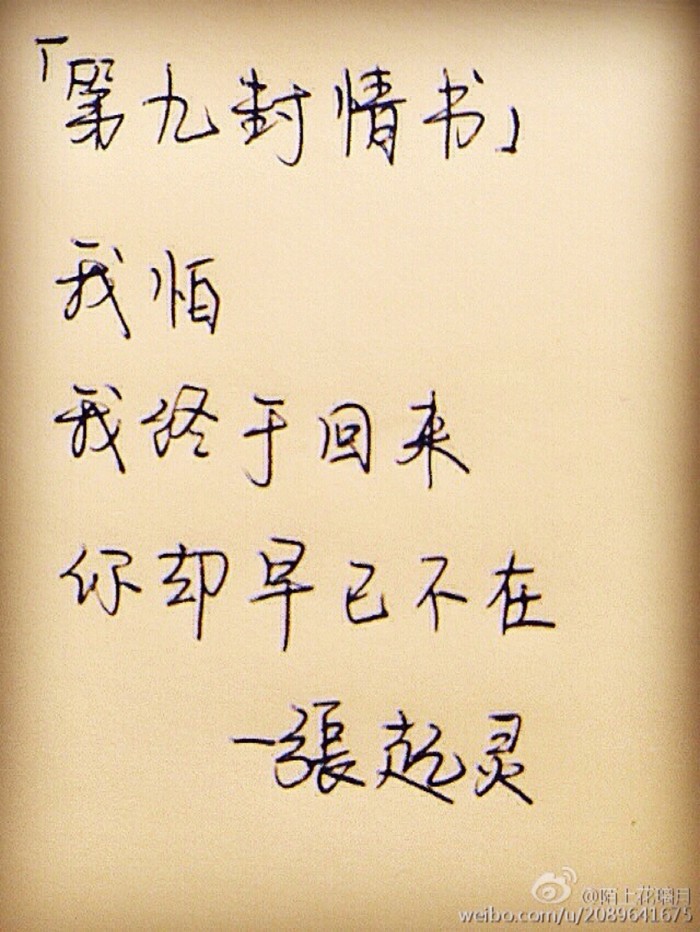 「第九封情书」
我怕
我终于回来
你却早已不在
一張起灵
@陌上花璃月
weibo.com/u/2089641675